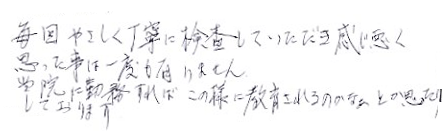 毎回やさしく丁寧に検査していただき感じ悪く
思った事は一度もありません
当院に勤務すればこの様に教育されるのかなぁとか思ったり
しております